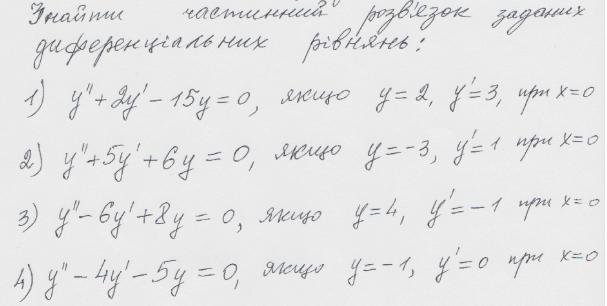 Знайти частинний розв'язок заданих
диференціальних рівнянь:
1) y'' + 2y' - 15y = 0, якщо y = 2, y' = 3, при x=0
2) y'' + 5y' + 6y = 0, якщо y = -3, y' = 1 при x=0
3) y'' - 6y' + 8y = 0, якщо y = 4, y' = -1 при x=0
4) y'' - 4y' - 5y = 0, якщо y = -1, y' = 0 при x=0